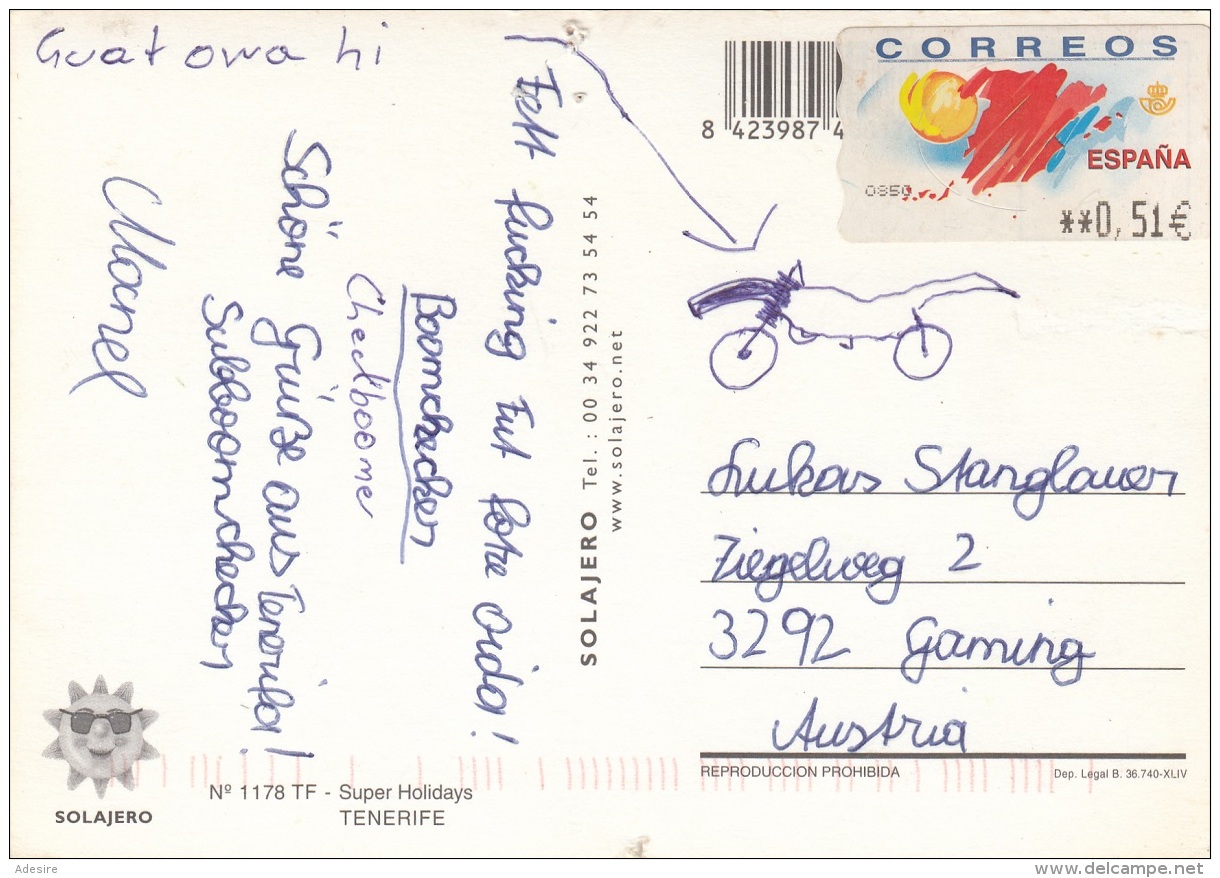 Guat owa hi
Fett fucking tut fotze oida!
Boomchecker
Checkboome
Schöne Grüße aus Teneriffa!
Subboomchecker
Manel
SOLAJERO Tel. : 00 34 922 73 54 54
www.solajero.net
8 423987 4
CORREOS
ESPAÑA
0850
**0,51€
Lukas Stanglauer
Ziegelweg 2
3292 Gaming
Austria
REPRODUCCION PROHIBIDA
Dep. Legal B. 36.740-XLIV
Nº 1178 TF - Super Holidays
TENERIFE
SOLAJERO
Adesire
www.delcampe.net